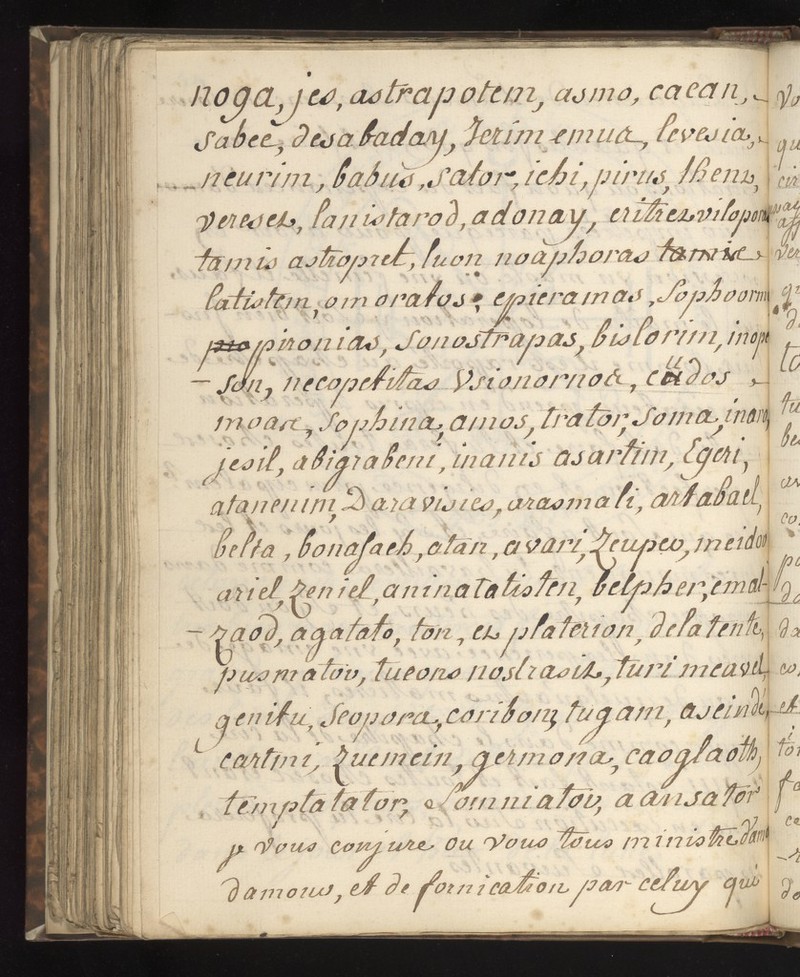 noga, jes, astrapotem, asmo, caean,
sabee, desabaday, Jerim emua, levesia,
neurim, babus, sator, ichi, pirus, Ihens,
veresez, lanistarod, adonay,
tamis astropiel, luon noaphoras tamise
latistem, omoratos, epieramas, Sophoorm
pro pironias, Sonostrapas, bislorim, inope
son, necopetitas Vsionornoa,
moare, Sophina, amos, trator, Soma,
jesil, abigrabeni, inanis asartim, Egeri,
atanenim, Daravisies, arasmali, artabael,
belta, bonasaeh, atan, avari, Zeupeo, meidoo
ariel, Zeniel, aninatatisten, belpher, emal-
-zaod, agatato, ton, ez platerion, delatente,
pusmatou, tueons nostrasiz, turi meavel,
genitu, Seopora, coribom, tugam, aseinde,
cartini, Zuemein, germona, caoglaoth,
temptatator, Somniatov, aansator
je vous conjure ou vous tous ministre
damour, et de fornication par celuy qui